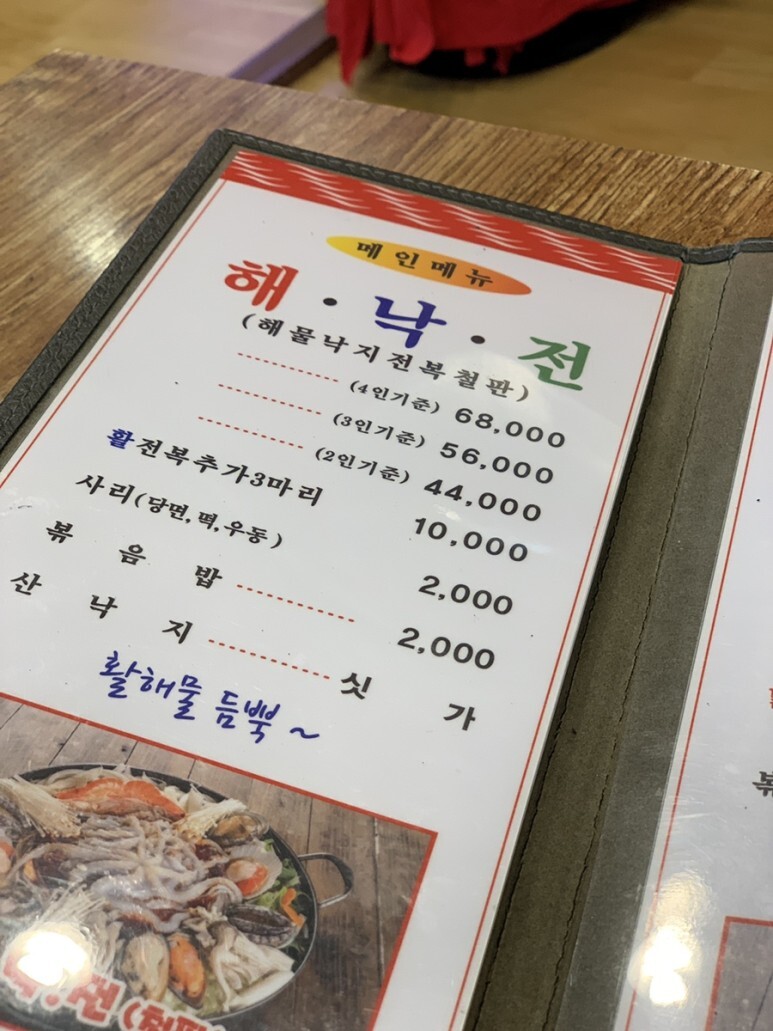 메인메뉴
해·낙·전
(해물낙지전복철판)
(4인기준) 68,000
(3인기준) 56,000
(2인기준) 44,000
활전복추가3마리 10,000
사리(당면,떡,우동) 2,000
볶음밥 2,000
산낙지 싯가
활해물 듬뿍~